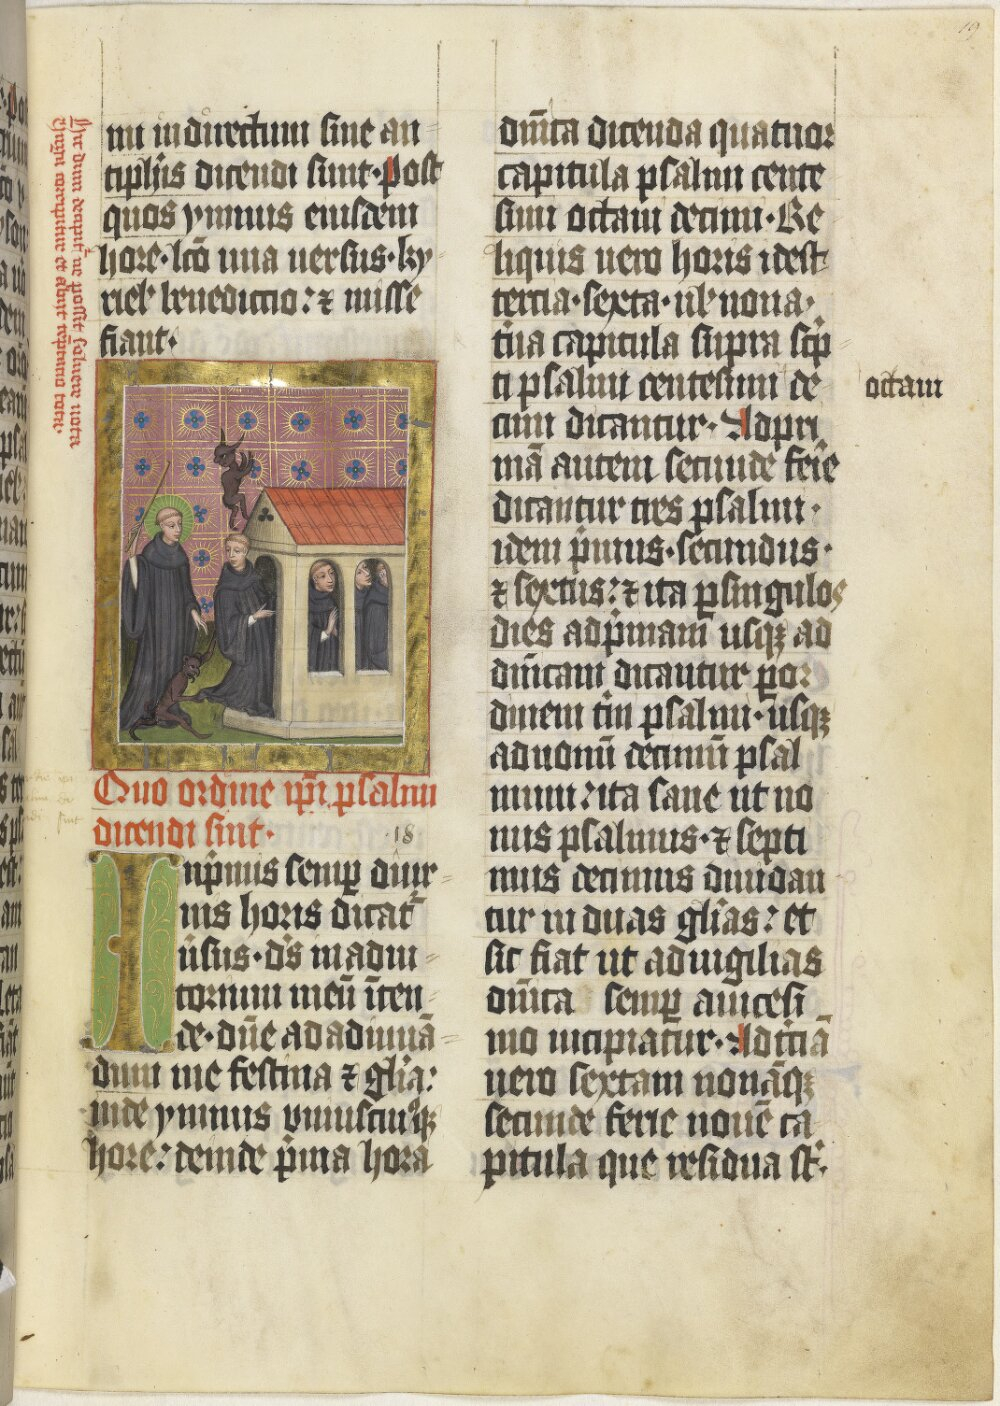 19
mi in directum sine an
tiphīs dicendi sunt· Post
quos ymnus eiusdem
hore· lcō una uersus· ky
riel' benedictio: ⁊ misse
fiant·
Quo ordine ip̄i psalmi
dicendi sint·
18
Inp̄mis semp̱ diur
nis horis dicat᷑
ūsus· d̄s in adiu
torium meū īten
de· dn̄e ad adiuuā
dum me festina ⁊ gl̄ia:
inde ymnus uniuscuiꝰqꝫ
hore: deinde p̄ma hora
dn̄ica dicenda quatuor
capitula psalmi cente
simi octaui decimi· Re
liquis uero horis idest
tercia· sexta· ul' nona·
t̄na capitula supra sc̄p
ti psalmi centesimi de
octaui
cimi dicantur· Ad pri
mā autem secunde ferie
dicantur tres psalmi·
idem p̄mus· secundus·
⁊ sextus: ⁊ ita p̱ singulos
dies ad p̄mam usqꝫ ad
dn̄icam dicantur p̱ or
dinem t̄ni psalmi· usqꝫ
ad nonū decimū psal
mum: ita sane ut no
nus psalmus· ⁊ septi
mus decimus diuidan
tur in duas gl̄ias: et
sic fiat ut ad uigilias
dn̄ica semp̱ a uicesi
mo incipiatur· Ad t̄ciā
uero sextam nonāqꝫ
secunde ferie nouē ca
pitula que residua st̄·